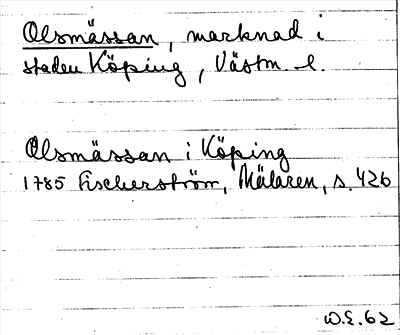 Olsmässan, marknad i
staden Köping, Västm. l.
Olsmässan i Köping
1785 Fischerström, Mälaren, s. 426
W.E. 62